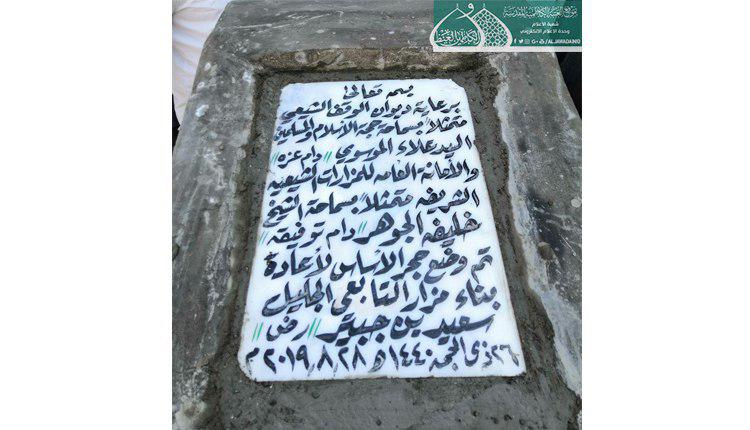 موقع العتبة الكاظمية المقدسة
شعبة الاعلام
وحدة الاعلام الالكتروني
ALJAWADAINIQ
بسمه تعالى
برعاية ديوان الوقف الشيعي
متمثلاً بسماحة حجة الأسلام والمسلمين
السيد علاء الموسوي "دام عزه"
والأمانة العامه للمزارات الشيعية
الشريفه متمثلاً بسماحة الشيخ
خليفه الجوهر "دام توفيقه"
تم وضع حجر الأساس لأعادة
بناء مزار التابعي الجليل
سعيد بن جبير "رض"
٢٦ ذي الحجة ١٤٤٠ ه ٢٠١٩,٨,٢٨ م